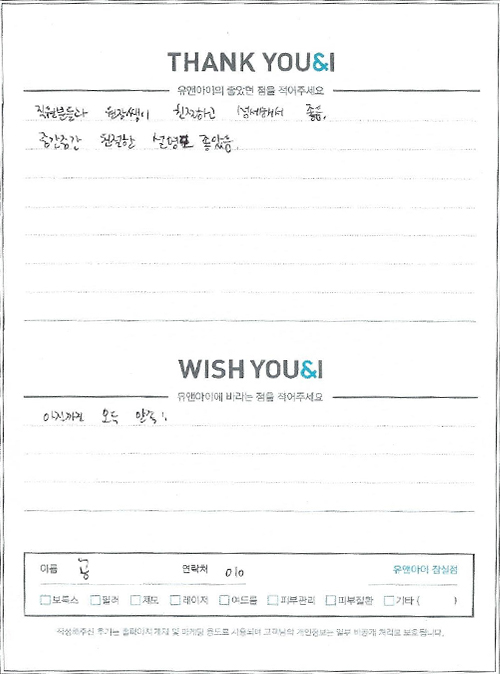 THANK YOU&I
유앤아이의 좋았던 점을 적어주세요
직원분들과 원장쌤이 친절하고 섬세해서 좋음.
중간중간 친절한 설명도 좋았음.
WISH YOU&I
유앤아이에 바라는 점을 적어주세요
아직까진 모두 만족!
이름 공 연락처 010 유앤아이 잠실점
보톡스 필러 제모 레이저 여드름 피부관리 피부질환 기타 ( )
작성해주신 후기는 홈페이지 게재 및 마케팅 용도로 사용되며 고객님의 개인정보는 일부 비공개 처리로 보호됩니다.